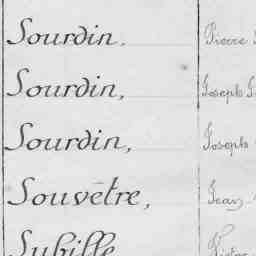 Sourdin. Pierre
Sourdin, Joseph
Sourdin, Joseph
Souvêtre, Jean
Subille